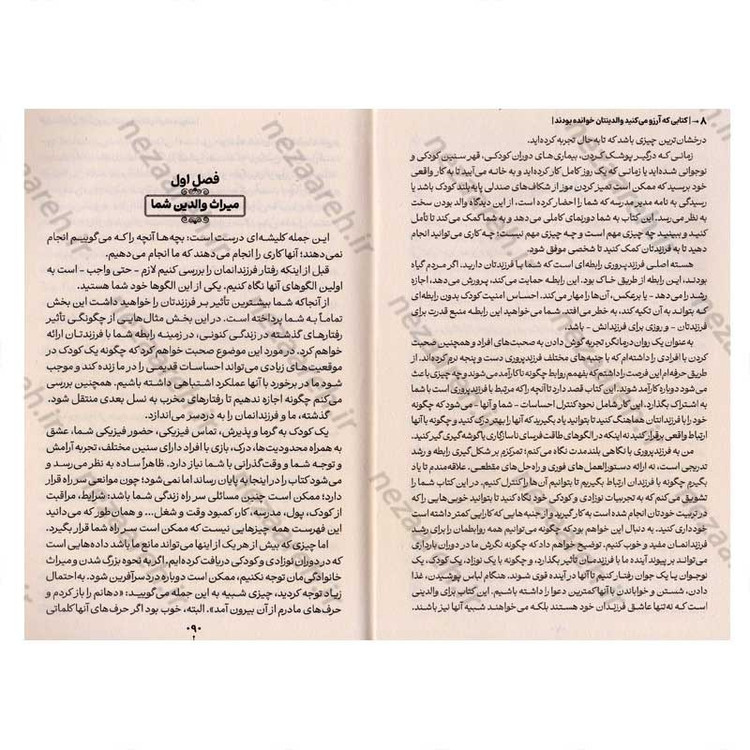 ۸ → | کتابی که آرزو می‌کنید والدینتان خوانده بودند |
درخشان‌ترین چیزی باشد که تا به حال تجربه کرده‌اید.
زمانی که درگیر پوشک کردن، بیماری‌های دوران کودکی، قهر سنین کودکی و
نوجوانی شده‌اید یا زمانی که یک روز کامل کار کرده‌اید و به خانه می‌آیید تا به کار واقعی
خود برسید که ممکن است تمیز کردن موز از شکاف‌های صندلی پایه‌بلند کودک باشد یا
رسیدگی به نامه مدیر مدرسه که شما را احضار کرده است، از این دیدگاه والد بودن سخت
به نظر می‌رسد. این کتاب به شما دورنمای کاملی می‌دهد و به شما کمک می‌کند تا تأمل
کنید و ببینید چه چیزی مهم است و چه چیزی مهم نیست؛ چه کاری می‌توانید انجام
دهید تا به فرزندتان کمک کنید تا شخصی موفق شود.
هسته اصلی فرزندپروری رابطه‌ای است که شما با فرزندتان دارید. اگر مردم گیاه
بودند، این رابطه از طریق خاک بود. این رابطه حمایت می‌کند، پرورش می‌دهد، اجازه
رشد را می‌دهد - یا برعکس، آن‌ها را مهار می‌کند. احساس امنیت کودک بدون رابطه‌ای
که بتواند به آن تکیه کند، به خطر می‌افتد. شما می‌خواهید این رابطه منبع قدرت برای
فرزندتان - و روزی برای فرزندانش - باشد.
به عنوان یک روان درمانگر، تجربه گوش دادن به صحبت‌های افراد و همچنین صحبت
کردن با افرادی را داشته‌ام که با جنبه‌های مختلف فرزندپروری دست و پنجه نرم کرده‌اند. از
طریق حرفه‌ام این فرصت را داشتم که بفهمم روابط چگونه ناکارآمد می‌شوند و چه چیزی باعث
می‌شود دوباره کارآمد شوند. این کتاب قصد دارد تا آنچه را که مرتبط با فرزندپروری است با شما
به اشتراک بگذارد. این کار شامل نحوه کنترل احساسات - شما و آنها - می‌شود که چگونه
خود را با فرزندانتان هماهنگ کنید تا بتوانید یاد بگیرید که آنها را بهتر درک کنید و چگونه با آنها
ارتباط واقعی برقرار کنید نه اینکه در الگوهای طاقت فرسای ناسازگاری یا گوشه گیری گیر کنید.
من به فرزندپروری با نگاهی بلندمدت نگاه می‌کنم؛ تمرکزم بر شکل‌گیری رابطه و رشد
تدریجی است، نه ارائه دستورالعمل‌های فوری و راه‌حل های مقطعی. علاقه‌مندم تا یاد
بگیرم چگونه با فرزندان ارتباط بگیریم تا بتوانیم آن‌ها را کنترل کنیم. در این کتاب شما را
تشویق می‌کنم که به تجربیات نوزادی و کودکی خود نگاه کنید تا بتوانید خوبی‌هایی را که
در تربیت خودتان انجام شده است به کار گیرید و از جنبه‌هایی که کارایی کمتر داشته است
خودداری کنید. به دنبال این خواهم بود که چگونه می‌توانیم همه روابطمان را برای رشد
فرزندانمان مفید و خوب کنیم. توضیح خواهم داد که چگونه نگرش ما در دوران بارداری
می‌تواند بر پیوند آینده ما با فرزندمان تأثیر بگذارد، و چگونه با یک نوزاد، یک کودک، یک
نوجوان یا یک جوان رفتار کنیم تا آنها در آینده قوی شوند. هنگام لباس پوشیدن، غذا
دادن، شستن و خواباندن با آنها کمترین دعوا را داشته باشیم. این کتاب برای والدینی
است که نه‌تنها عاشق فرزندان خود هستند بلکه می‌خواهند شبیه آنها نیز باشند.
فصل اول
میراث والدین شما
این جمله کلیشه‌ای درست است: بچه‌ها آنچه را که می‌گوییم انجام
نمی‌دهند؛ آنها کاری را انجام می‌دهند که ما انجام می‌دهیم.
قبل از اینکه رفتار فرزندانمان را بررسی کنیم لازم - حتی واجب - است به
اولین الگوهای آنها نگاه کنیم. یکی از این الگوها خود شما هستید.
از آنجا که شما بیشترین تأثیر بر فرزندتان را خواهید داشت این بخش
تماماً به شما پرداخته است. در این بخش مثال‌هایی از چگونگی تأثیر
رفتارهای گذشته در زندگی کنونی، در زمینه رابطه شما با فرزندتان ارائه
خواهم کرد. در مورد این موضوع صحبت خواهم کرد که چگونه یک کودک در
موقعیت‌های زیادی می‌تواند احساسات قدیمی را در ما زنده کند و موجب
شود ما در برخورد با آنها عملکرد اشتباهی داشته باشیم. همچنین بررسی
می‌کنم چگونه اجازه ندهیم تا رفتارهای مخرب به نسل بعدی منتقل شود.
گذشته، ما و فرزندانمان را به دردسر می‌اندازد.
یک کودک به گرما و پذیرش، تماس فیزیکی، حضور فیزیکی شما، عشق
به همراه محدودیت‌ها، درک، بازی با افراد دارای سنین مختلف، تجربه آرامش
و توجه شما و وقت‌گذرانی با شما نیاز دارد. ظاهراً ساده به نظر می‌رسد و
می‌شود کتاب را در اینجا به پایان رساند اما نمی‌شود؛ چون موانعی سر راه قرار
دارد؛ ممکن است چنین مسائلی سر راه زندگی شما باشد: شرایط، مراقبت
از کودک، پول، مدرسه، کار، کمبود وقت و شغل... و همان‌طور که می‌دانید
این فهرست همه چیزهایی نیست که ممکن است سر راه شما قرار بگیرد.
اما چیزی که بیش از هر یک از اینها می‌تواند مانع ما باشد داده‌هایی است
که در دوران نوزادی و کودکی دریافت کرده‌ایم. اگر به نحوه بزرگ شدن و میراث
خانوادگی‌مان توجه نکنیم، ممکن است دوباره دردسرآفرین شود. به احتمال
زیاد توجه کردید، چیزی شبیه به این جمله می‌گویید: «دهانم را باز کردم و
حرف‌های مادرم از آن بیرون آمد». البته، خوب بود اگر حرف‌های آنها کلماتی
۰۹۰
nezaareh.ir